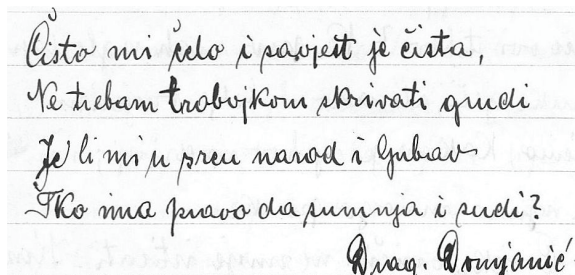 Čisto mi čelo i savjest je čista,
Ne trebam trobojkom skrivati grudi
Je li mi u srcu narod i ljubav
Tko ima pravo da sumnja i sudi?
Drag. Domjanić